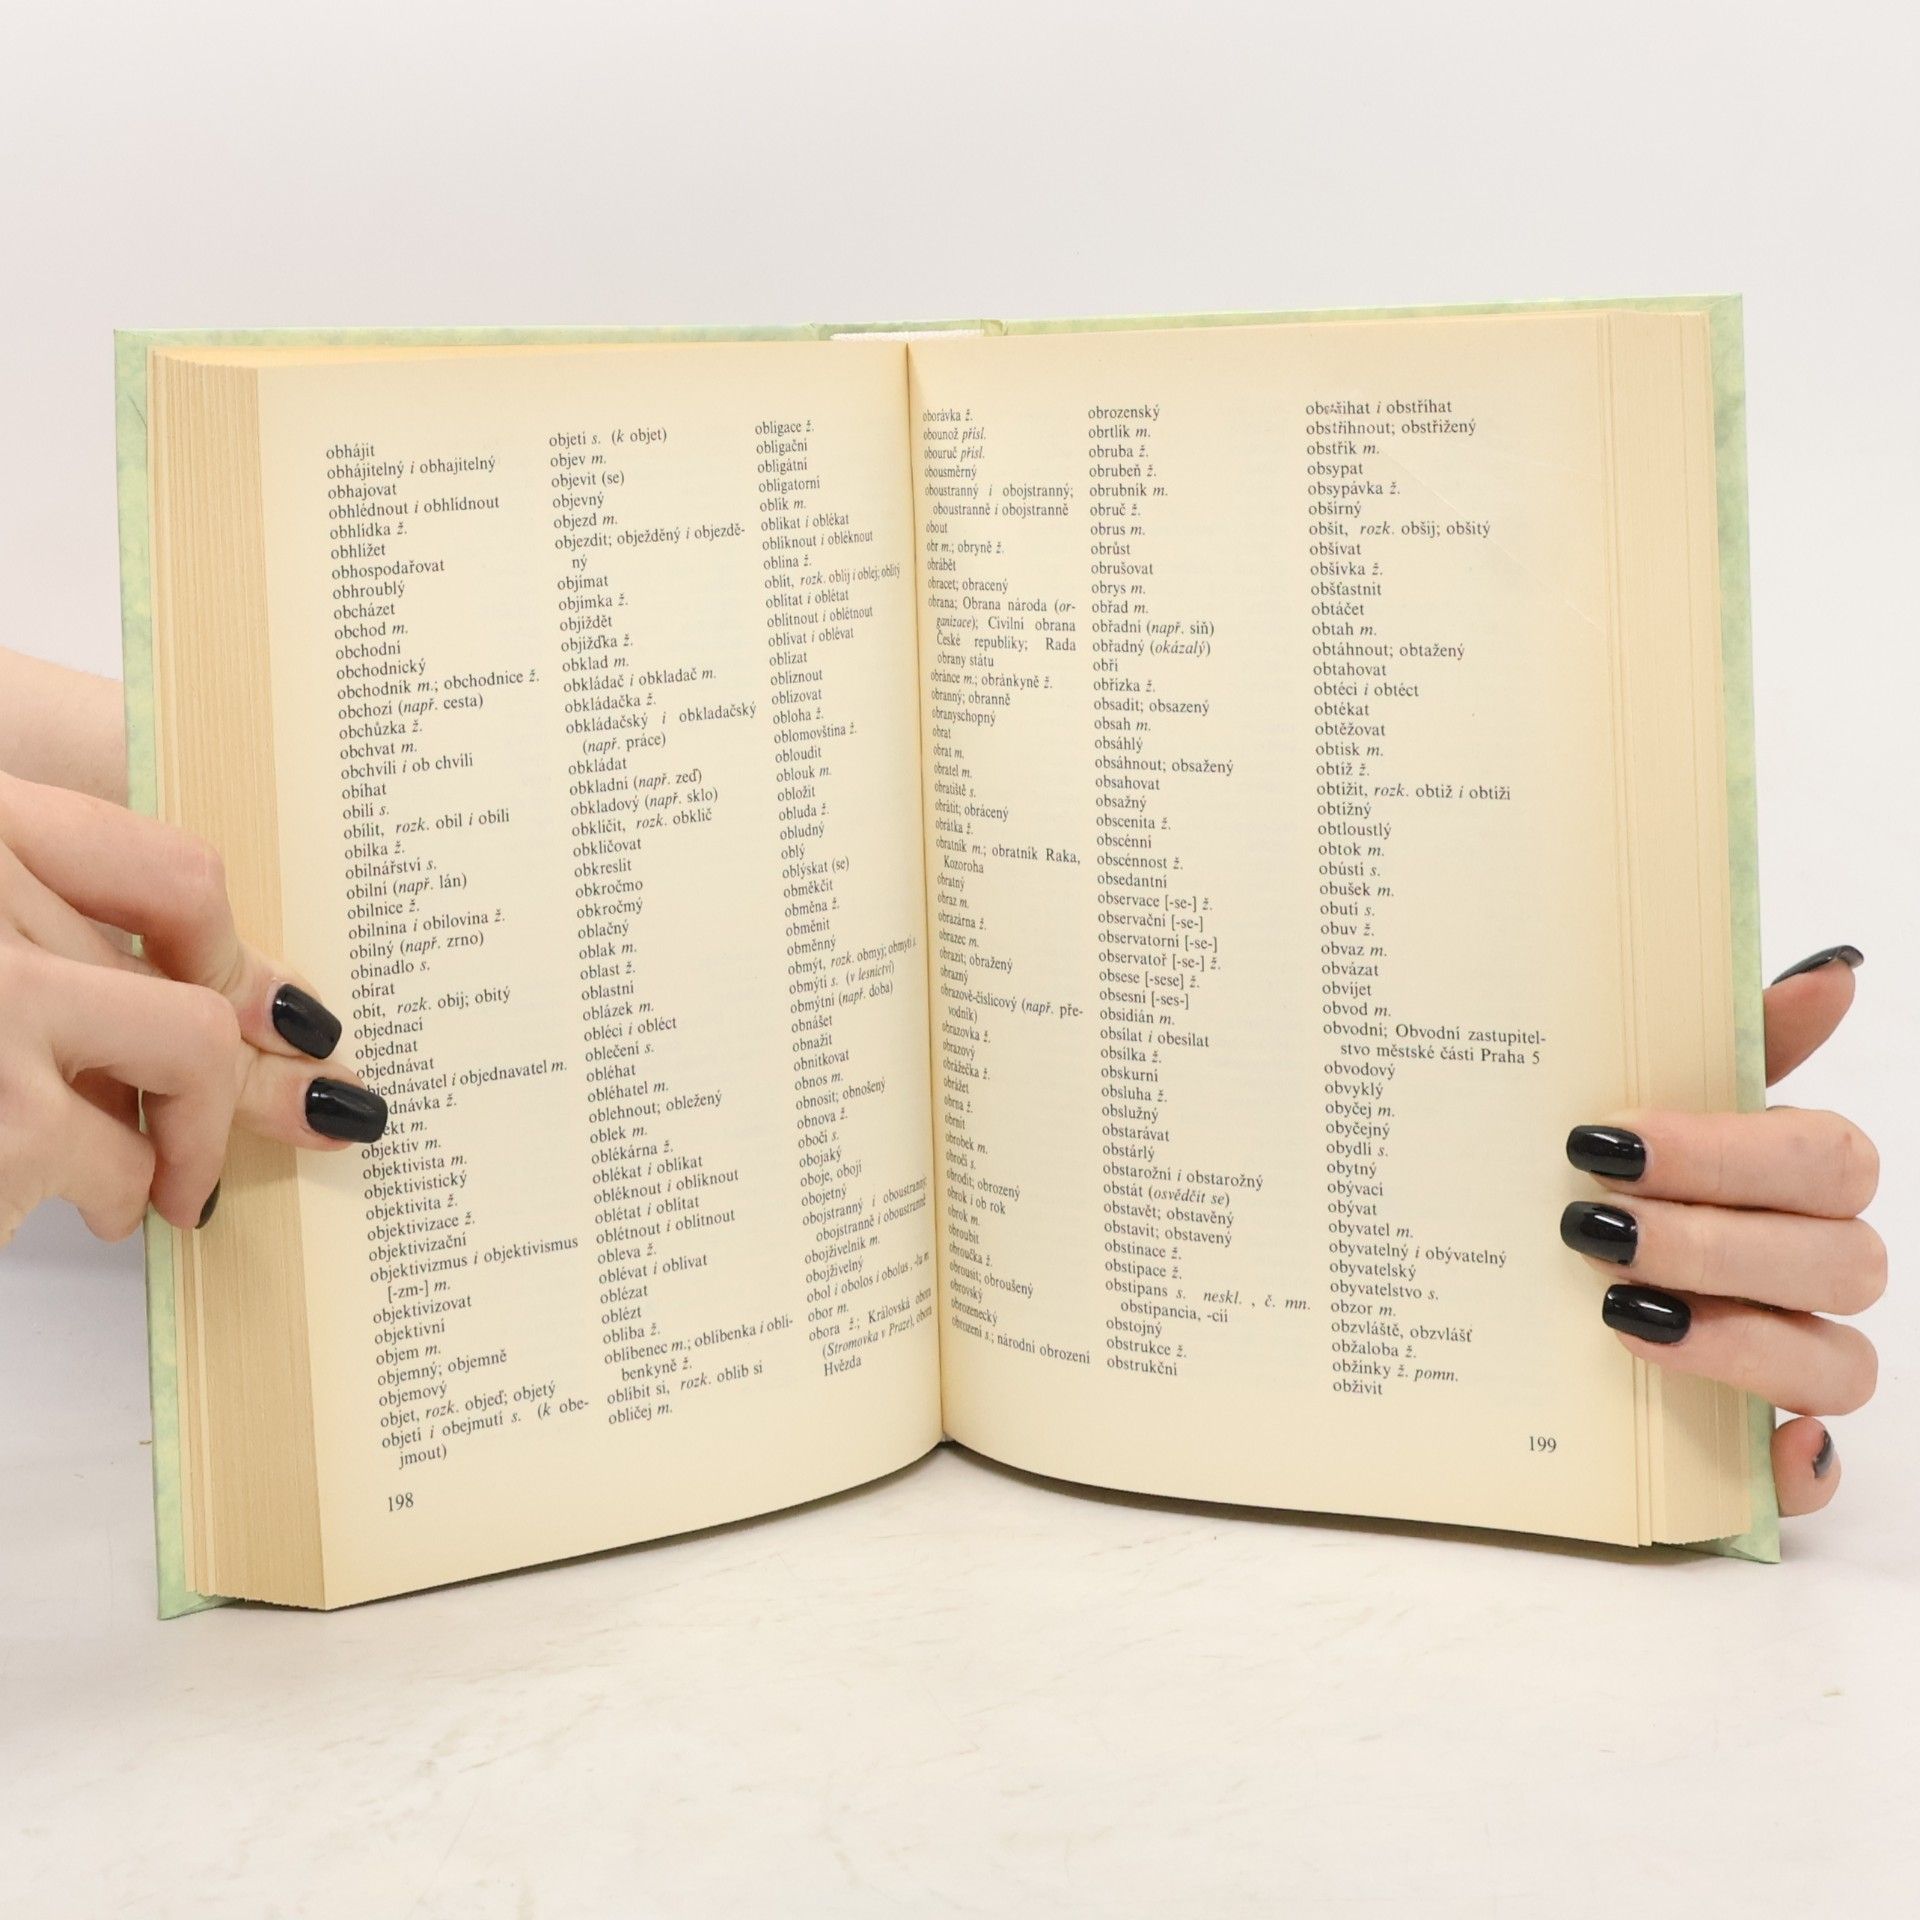 obhájit
obhájitelný i obhajitelný
obhajovat
obhlédnout i obhlídnout
obhlídka ž.
obhlížet
obhospodařovat
obhroublý
obcházet
obchod m.
obchodní
obchodnický
obchodník m.; obchodnice ž.
obchozí (např. cesta)
obchůzka ž.
obchvat m.
obchvíli i ob chvíli
obíhat
obilí s.
obílit, rozk. obil i obili
obilka ž.
obilnářství s.
obilní (např. lán)
obilnice ž.
obilnina i obilovina ž.
obilný (např. zrno)
obinadlo s.
obírat
obít, rozk. obij; obitý
objednací
objednat
objednávat
objednávatel i objednavatel m.
dnávka ž.
ekt m.
objektiv m.
objektivista m.
objektivistický
objektivita ž.
objektivizace ž.
objektivizační
objektivizmus i objektivismus
[-zm-] m.
objektivizovat
objektivní
objem m.
objemný; objemně
objemový
objet, rozk. objeď; objetý
objetí i obejmutí s. (k obe-
jmout)
objetí s. (k objet)
objev m.
objevit (se)
objevný
objezd m.
objezdit; obježděný i objezdě-
ný
objímat
objímka ž.
objíždět
objížďka ž.
obklad m.
obkládač i obkladač m.
obkládačka ž.
obkládačský i obkladačský
(např. práce)
obkládat
obkladní (např. zeď)
obkladový (např. sklo)
obklíčit, rozk. obklič
obkličovat
obkreslit
obkročmo
obkročmý
oblačný
oblak m.
oblast ž.
oblastní
oblázek m.
obléci i obléct
oblečení s.
obléhat
obléhatel m.
oblehnout; obležený
oblek m.
oblékárna ž.
oblékat i oblíkat
obléknout i oblíknout
oblétat i oblítat
oblétnout i oblítnout
obleva ž.
oblévat i oblívat
oblézat
oblézt
obliba ž.
oblíbenec m.; oblíbenka i oblí-
benkyně ž.
oblíbit si, rozk. oblib si
obličej m.
obligace ž.
obligační
obligátní
obligatorní
oblík m.
oblíkat i oblékat
oblíknout i obléknout
oblina ž.
oblít, rozk. oblij i oblej; oblitý
oblítat i oblétat
oblítnout i oblétnout
oblívat i oblévat
oblízat
obliznout
oblizovat
obloha ž.
oblomovština ž.
obloudit
oblouk m.
obložit
obluda ž.
obludný
oblý
oblýskat (se)
obměkčit
obměna ž.
obměnit
obměnný
obmýt, rozk. obmyj; obmytí s.
obmýtí s. (v lesnictví)
obmýtní (např. doba)
obnášet
obnažit
obnitkovat
obnos m.
obnosit; obnošený
obnova ž.
obočí s.
obojaký
oboje, obojí
obojetný
obojstranný i oboustranný;
obojstranně i oboustranně
obojživelník m.
obojživelný
obol i obolos i obolus, -lu m.
obor m.
obora ž.; Královská obora
(Stromovka v Praze), obora
Hvězda
198
oborávka ž.
obounož přísl.
obouruč přísl.
obousměrný
oboustranný i obojstranný;
oboustranně i obojstranně
obout
obr m.; obryně ž.
obrábět
obracet; obracený
obrana; Obrana národa (or-
ganizace); Civilní obrana
České republiky; Rada
obrany státu
obránce m.; obránkyně ž.
obranný; obranně
obranyschopný
obrat
obrat m.
obratel m.
obratiště s.
obrátit; obrácený
obrátka ž.
obratník m.; obratník Raka,
Kozoroha
obratný
obraz m.
obrazárna ž.
obrazec m.
obrazit; obražený
obrazný
obrazově-číslicový (např. pře-
vodník)
obrazovka ž.
obrazový
obrážečka ž.
obrážet
obrna ž.
obrnit
obrobek m.
obročí s.
obrodit; obrozený
obrok i ob rok
obrok m.
obroubit
obroučka ž.
obrousit; obroušený
obrovský
obrozenecký
obrození s.; národní obrození
obrozenský
obrtlík m.
obruba ž.
obrubeň ž.
obrubník m.
obruč ž.
obrus m.
obrůst
obrušovat
obrys m.
obřad m.
obřadní (např. síň)
obřadný (okázalý)
obří
obřízka ž.
obsadit; obsazený
obsah m.
obsáhlý
obsáhnout; obsažený
obsahovat
obsažný
obscenita ž.
obscénní
obscénnost ž.
obsedantní
observace [-se-] ž.
observační [-se-]
observatorní [-se-]
observatoř [-se-] ž.
obsese [-sese] ž.
obsesní [-ses-]
obsidián m.
obsílat i obesílat
obsílka ž.
obskurní
obsluha ž.
obslužný
obstarávat
obstárlý
obstarožní i obstarožný
obstát (osvědčit se)
obstavět; obstavěný
obstavit; obstavený
obstinace ž.
obstipace ž.
obstipans s. neskl., č. mn.
obstipancia, -cií
obstojný
obstrukce ž.
obstrukční
obstřihat i obstříhat
obstřihnout; obstřižený
obstřik m.
obsypat
obsypávka ž.
obšírný
obšít, rozk. obšij; obšitý
obšívat
obšívka ž.
obšťastnit
obtáčet
obtah m.
obtáhnout; obtažený
obtahovat
obtéci i obtéct
obtékat
obtěžovat
obtisk m.
obtíž ž.
obtížit, rozk. obtiž i obtiži
obtížný
obtloustlý
obtok m.
obústí s.
obušek m.
obutí s.
obuv ž.
obvaz m.
obvázat
obvíjet
obvod m.
obvodní; Obvodní zastupitel-
stvo městské části Praha 5
obvodový
obvyklý
obyčej m.
obyčejný
obydlí s.
obytný
obývací
obývat
obyvatel m.
obyvatelný i obývatelný
obyvatelský
obyvatelstvo s.
obzor m.
obzvláště, obzvlášť
obžaloba ž.
obžínky ž. pomn.
obživit
199